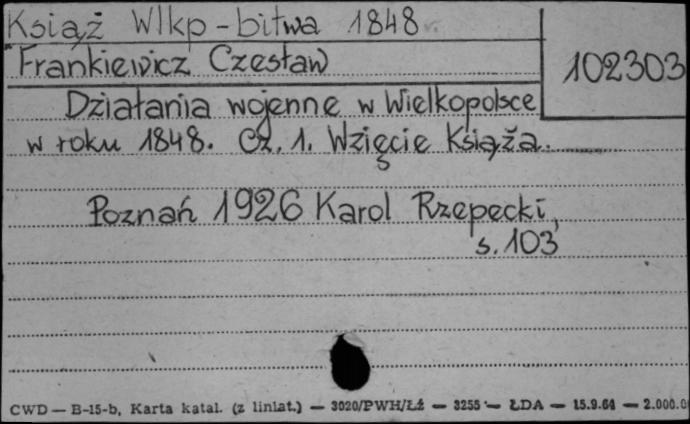 Książ Wlkp - bitwa 1848 r.
Frankiewicz Czesław
102303
Działania wojenne w Wielkopolsce
w roku 1848. Cz. 1. Wzięcie Książa.
Poznań 1926 Karol Rzepecki,
s. 103
CWD — B-15-b, Karta katal. (z liniat.) — 3020/PWH/Łź — 3255 — ŁDA — 15.9.64 — 2.000.0